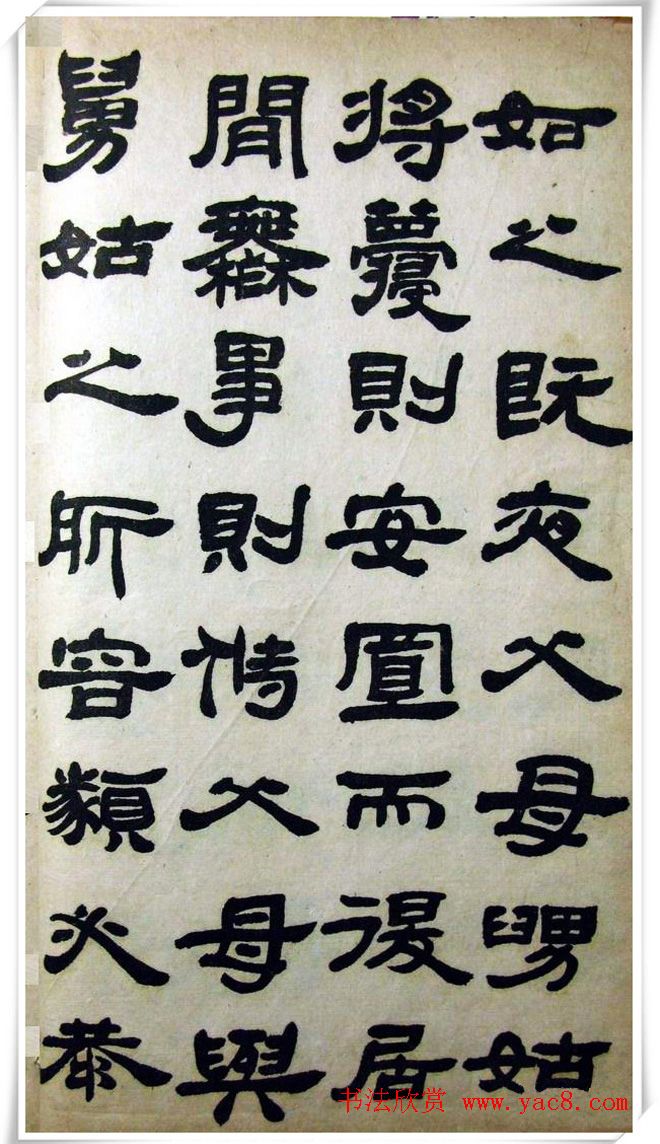 如之既夜父母舅姑
將寢則安置而後居
閒無事則侍父母與
舅姑之所容類必恭
书法欣赏 www.yac8.com